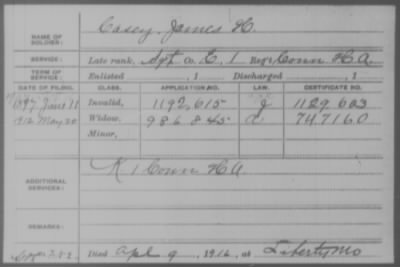 NAME OF SOLDIER: Casey, James H.
SERVICE: Late rank, Sgt Co. E, 1 Reg't Conn H A.
TERM OF SERVICE: Enlisted , 1 Discharged , 1
DATE OF FILING. CLASS. APPLICATION NO. LAW. CERTIFICATE NO.
1897 June 11 Invalid, 1192,615 J 1129,603
1912 May 20 Widow, 986845 747160
Minor,
ADDITIONAL SERVICES: K 1 Conn H A
REMARKS:
Died Apl 9, 1912, at Liberty Mo